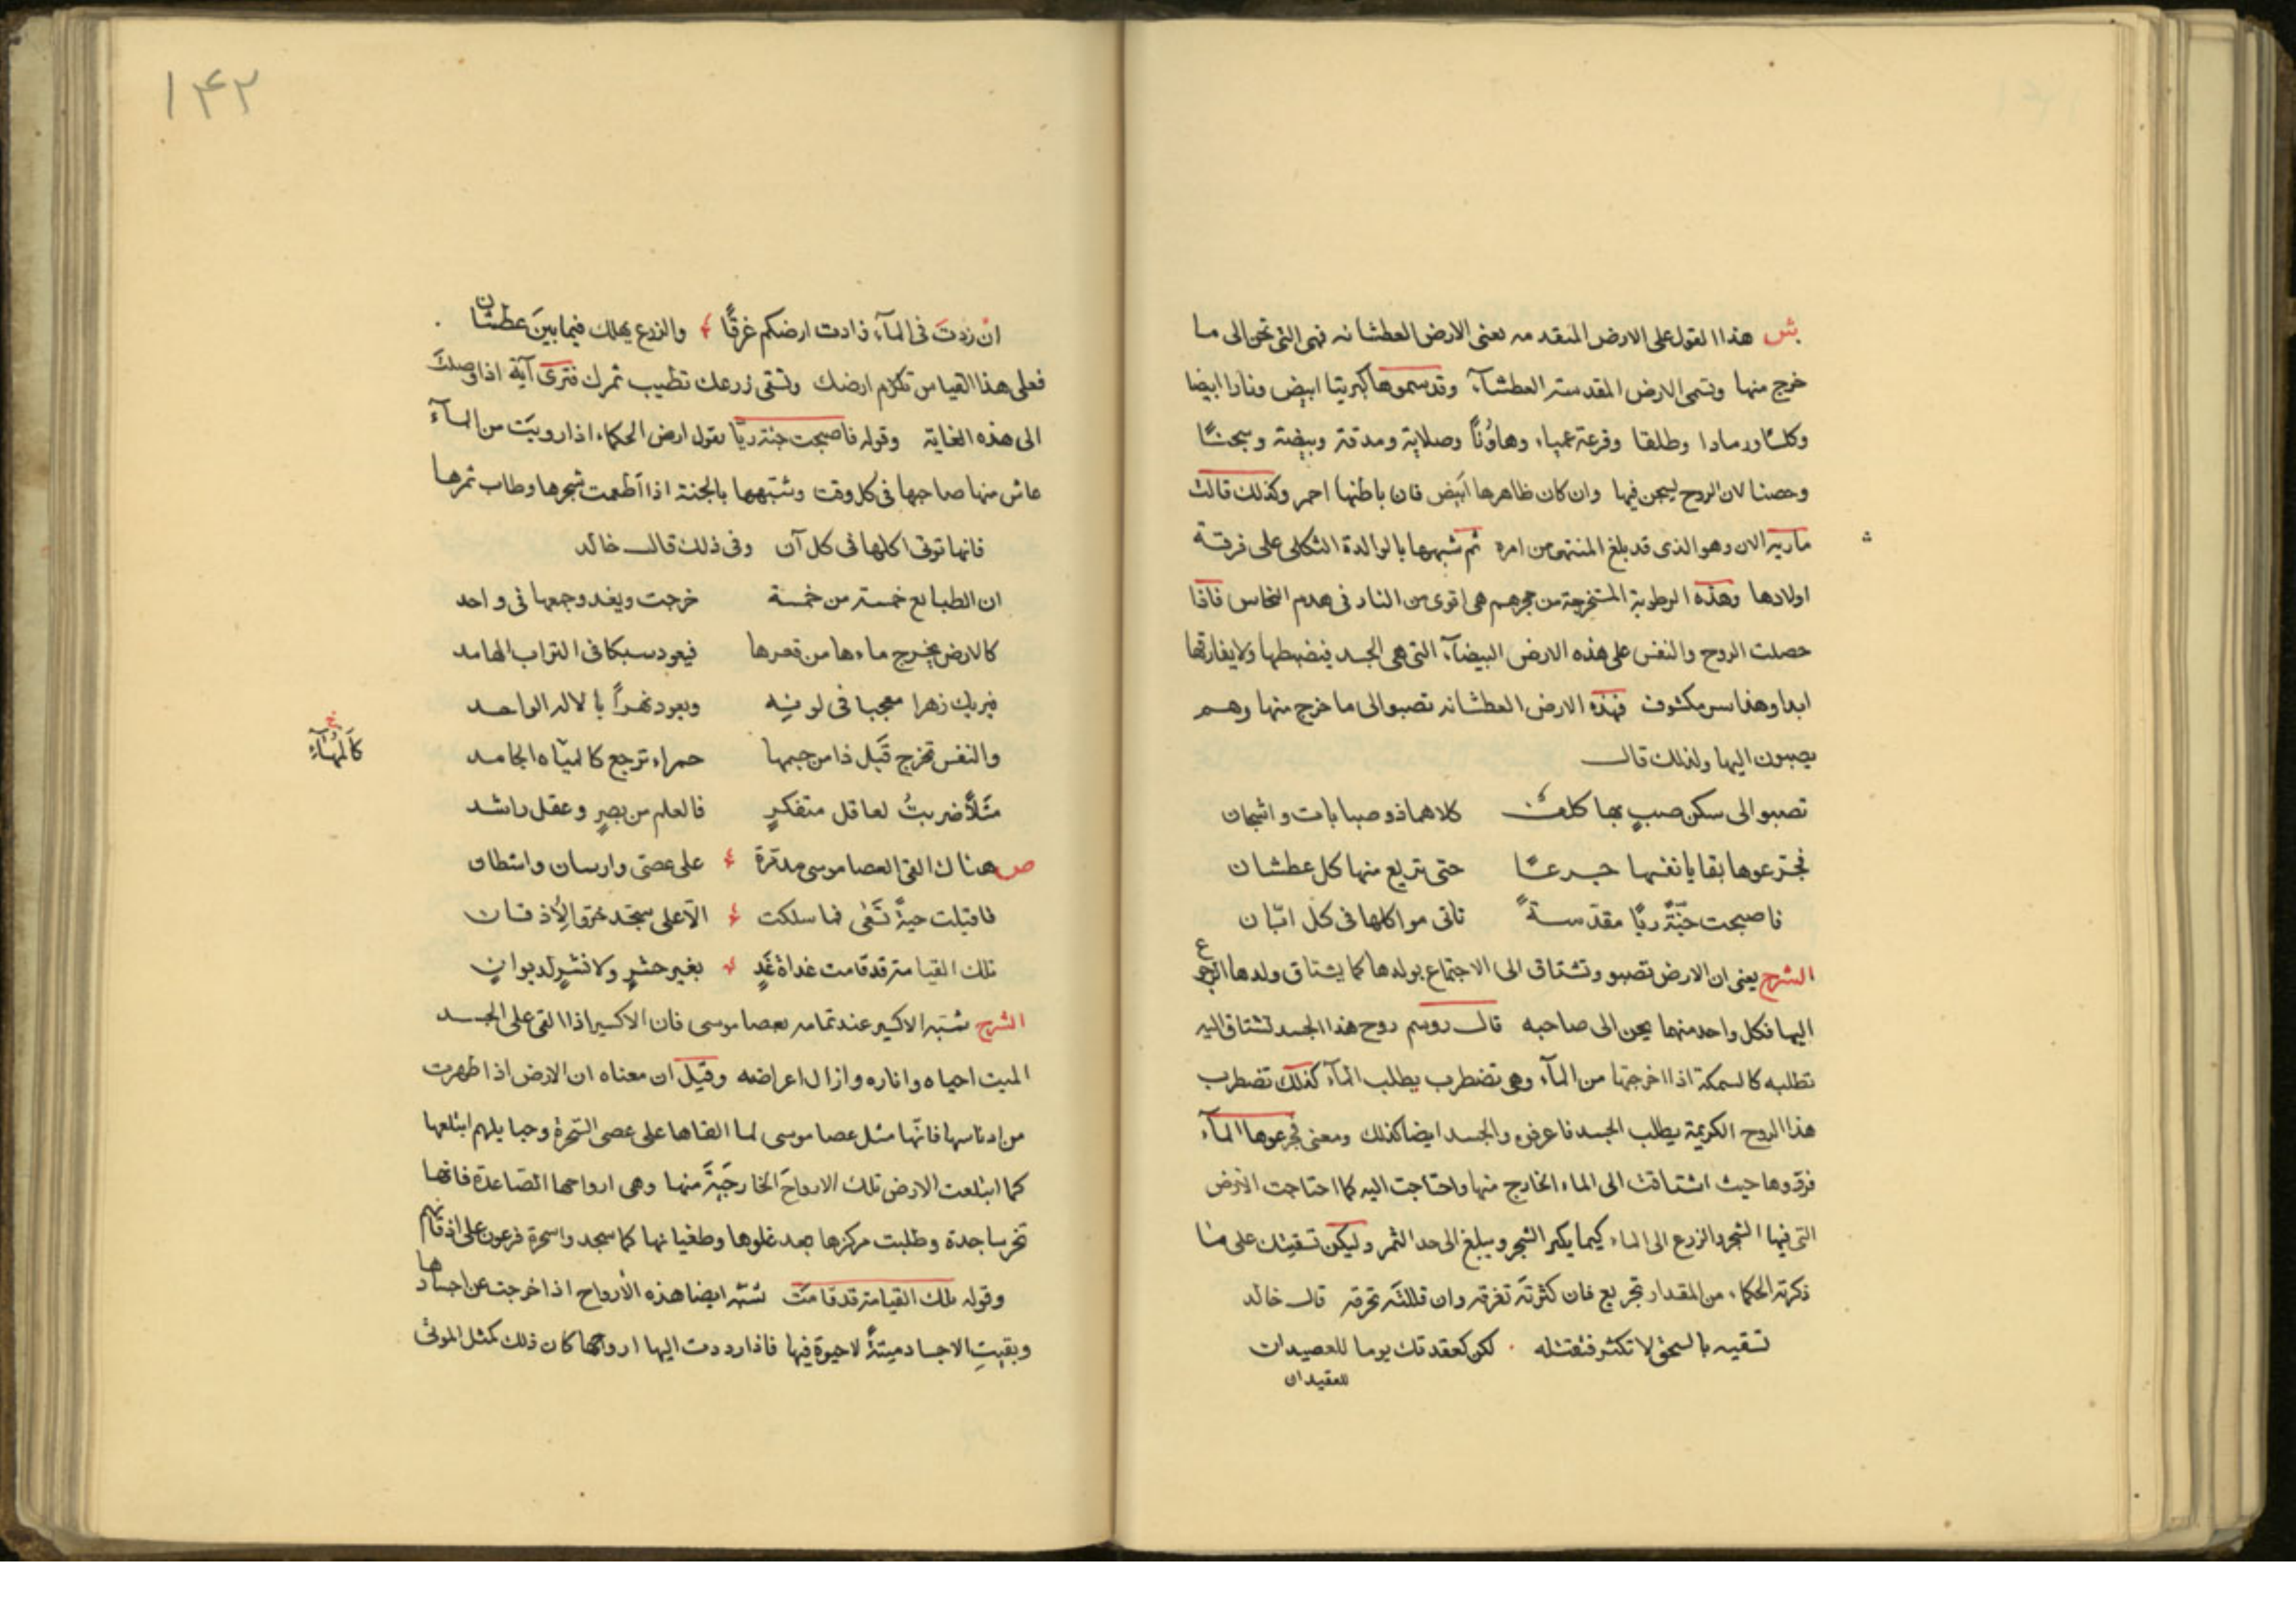 ش هذا القول على الارض المتقدمه يعنى الارض العطشانه فهى التى تحن الى ما
خرج منها وتسمى الارض المقدسة العطشآء وقد سموها كبريتا ابيض ونارا ابيضا
وكلسا ورمادا وطلقا وقرعة عمياء وهاوُنًا وصلاية ومدقة وبيضة وسجنًا
وحصنا لان الروح ليسجن فيها وان كان ظاهرها ابيض فان باطنها احمر وكذلك قالت
مارية الان وهو الذى قد بلغ المنتهى من امره ثم شبهها بالوالدة الثكلى على فرقة
اولادها وهذه الرطوبة المستخرجة من حجرهم هى اقوى من النار فى هدم النحاس فاذا
حصلت الروح والنفس على هذه الارض البيضآء التى هى الجسد فيضبطها ولا يفارقها
ابدا وهذا سر مكشوف فهذه الارض العطشانه تصبو الى ما خرج منها وهم
يصبون اليها ولذلك قال
تصبو الى سكن صبٍ بها كلف كلاهما ذو صبابات واشجان
فجرعوها بقايا نفسها جرعًا حتى تريع منها كل عطشان
فاصبحت جنّةً ريًا مقدّسةً تاتى مواكلها فى كل ابّان
الشرح يعنى ان الارض تصبو وتشتاق الى الاجتماع بولدها كما يشتاق ولدها الرجوع
اليها فكل واحد منهما يحن الى صاحبه قال روسم روح هذا الجسد تشتاق اليه
تطلبه كالسمكة اذا اخرجتها من المآء وهى تضطرب يطلب المآء كذلك تضطرب
هذا الروح الكريمة يطلب الجسد فاعرفه والجسد ايضا كذلك ومعنى فجرعوها المآء
فردوها حيث اشتاقت الى الماء الخارج منها واحتاجت اليه كما احتاجت الارض
التى فيها الشجر والزرع الى الماء كيما يكبر الشجر ويبلغ الى حد الثمر وليكن تسقيتك على ما
ذكرته الحكماء من المقدار تجريع فان كثرتَه تغرقه وان قللتَه تحرقه قال خالد
تسقيه بالسحق لا تكثر فتقتله لكن كعقدتك يوما للعصيدان
للعقيدان
١٤٢
ان زدتَ فى المآء زادت ارضكم غرقًا والزرع يهلك فيما بينَ عطشان
فعلى هذا القياس تكرم ارضك وتسقى زرعك تطيب ثمرك فترى آية اذا وصلتَ
الى هذه الغاية وقوله فاصبحت جنة ريّا يقول ارض الحكماء اذا رويَت من المآء
عاش منها صاحبها فى كل وقت وشبّهها بالجنة اذا اطعمت شجرها وطاب ثمرها
فانها توتى اكلها فى كل آن وفى ذلك قال خالد
ان الطبايع خمسة من خمسة خرجت ويغدو جمعها فى واحد
كالارض يخرج ماءها من قعرها فيعود سبكا فى التراب الهامد
فيريك زهرا معجبا فى لونه ويعود نهراً بالاله الواحد
والنفس تخرج قَبل ذا من جسمها حمراء ترجع كالمياه الجامد
خ
كالمَهَآءِ
مثَلاً ضربتُ لعاقل متفكرٍ فالعلم من بصرٍ وعقل راشد
ص هناك القى العصا موسى مدبّرة على عصىّ وارسان واشطان
فاقبلت حيةً تَسْعى فما سلكت الّا على سجّد خرّوا لِاُذقان
تلك القيامة قد قامت غداةَ غَدٍ بغير حشرٍ ولا نشرٍ لديوانٍ
الشرح شبّه الاكسير عند تمامه بعصا موسى فان الاكسير اذا القى على الجسد
الميت احياه واناره وازال اعراضه وقيل ان معناه ان الارض اذا ظهرت
من ادناسها فانّها مثل عصا موسى لما القاها على عصى السّحرة وحبايلهم ابتلعها
كما ابتلعت الارض تلك الارواحَ الخارجَةَ منها وهى ارواحها الصّاعدة فانها
تخر ساجدة وطلبت مركزها بعد غلوها وطغيانها كما سجدوا سحرة فرعون على اذقانهم
وقوله تلك القيامة قد قامَت شبّه ايضا هذه الارواح اذا خرجت عن اجسادها
وبقيتِ الاجساد ميتةً لا حيوة فيها فاذا رددت اليها ارواحها كان ذلك كمثل الموتى